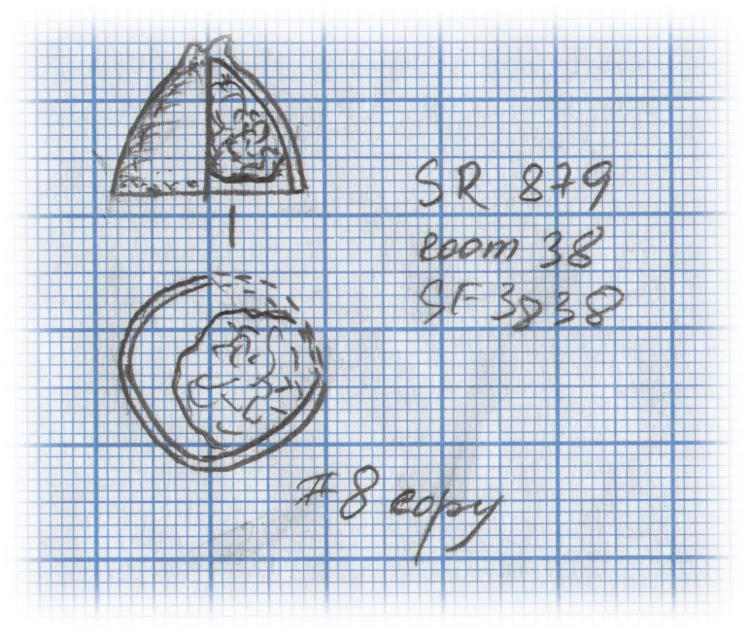 SR 879
room 38
SF 3838
#8 copy